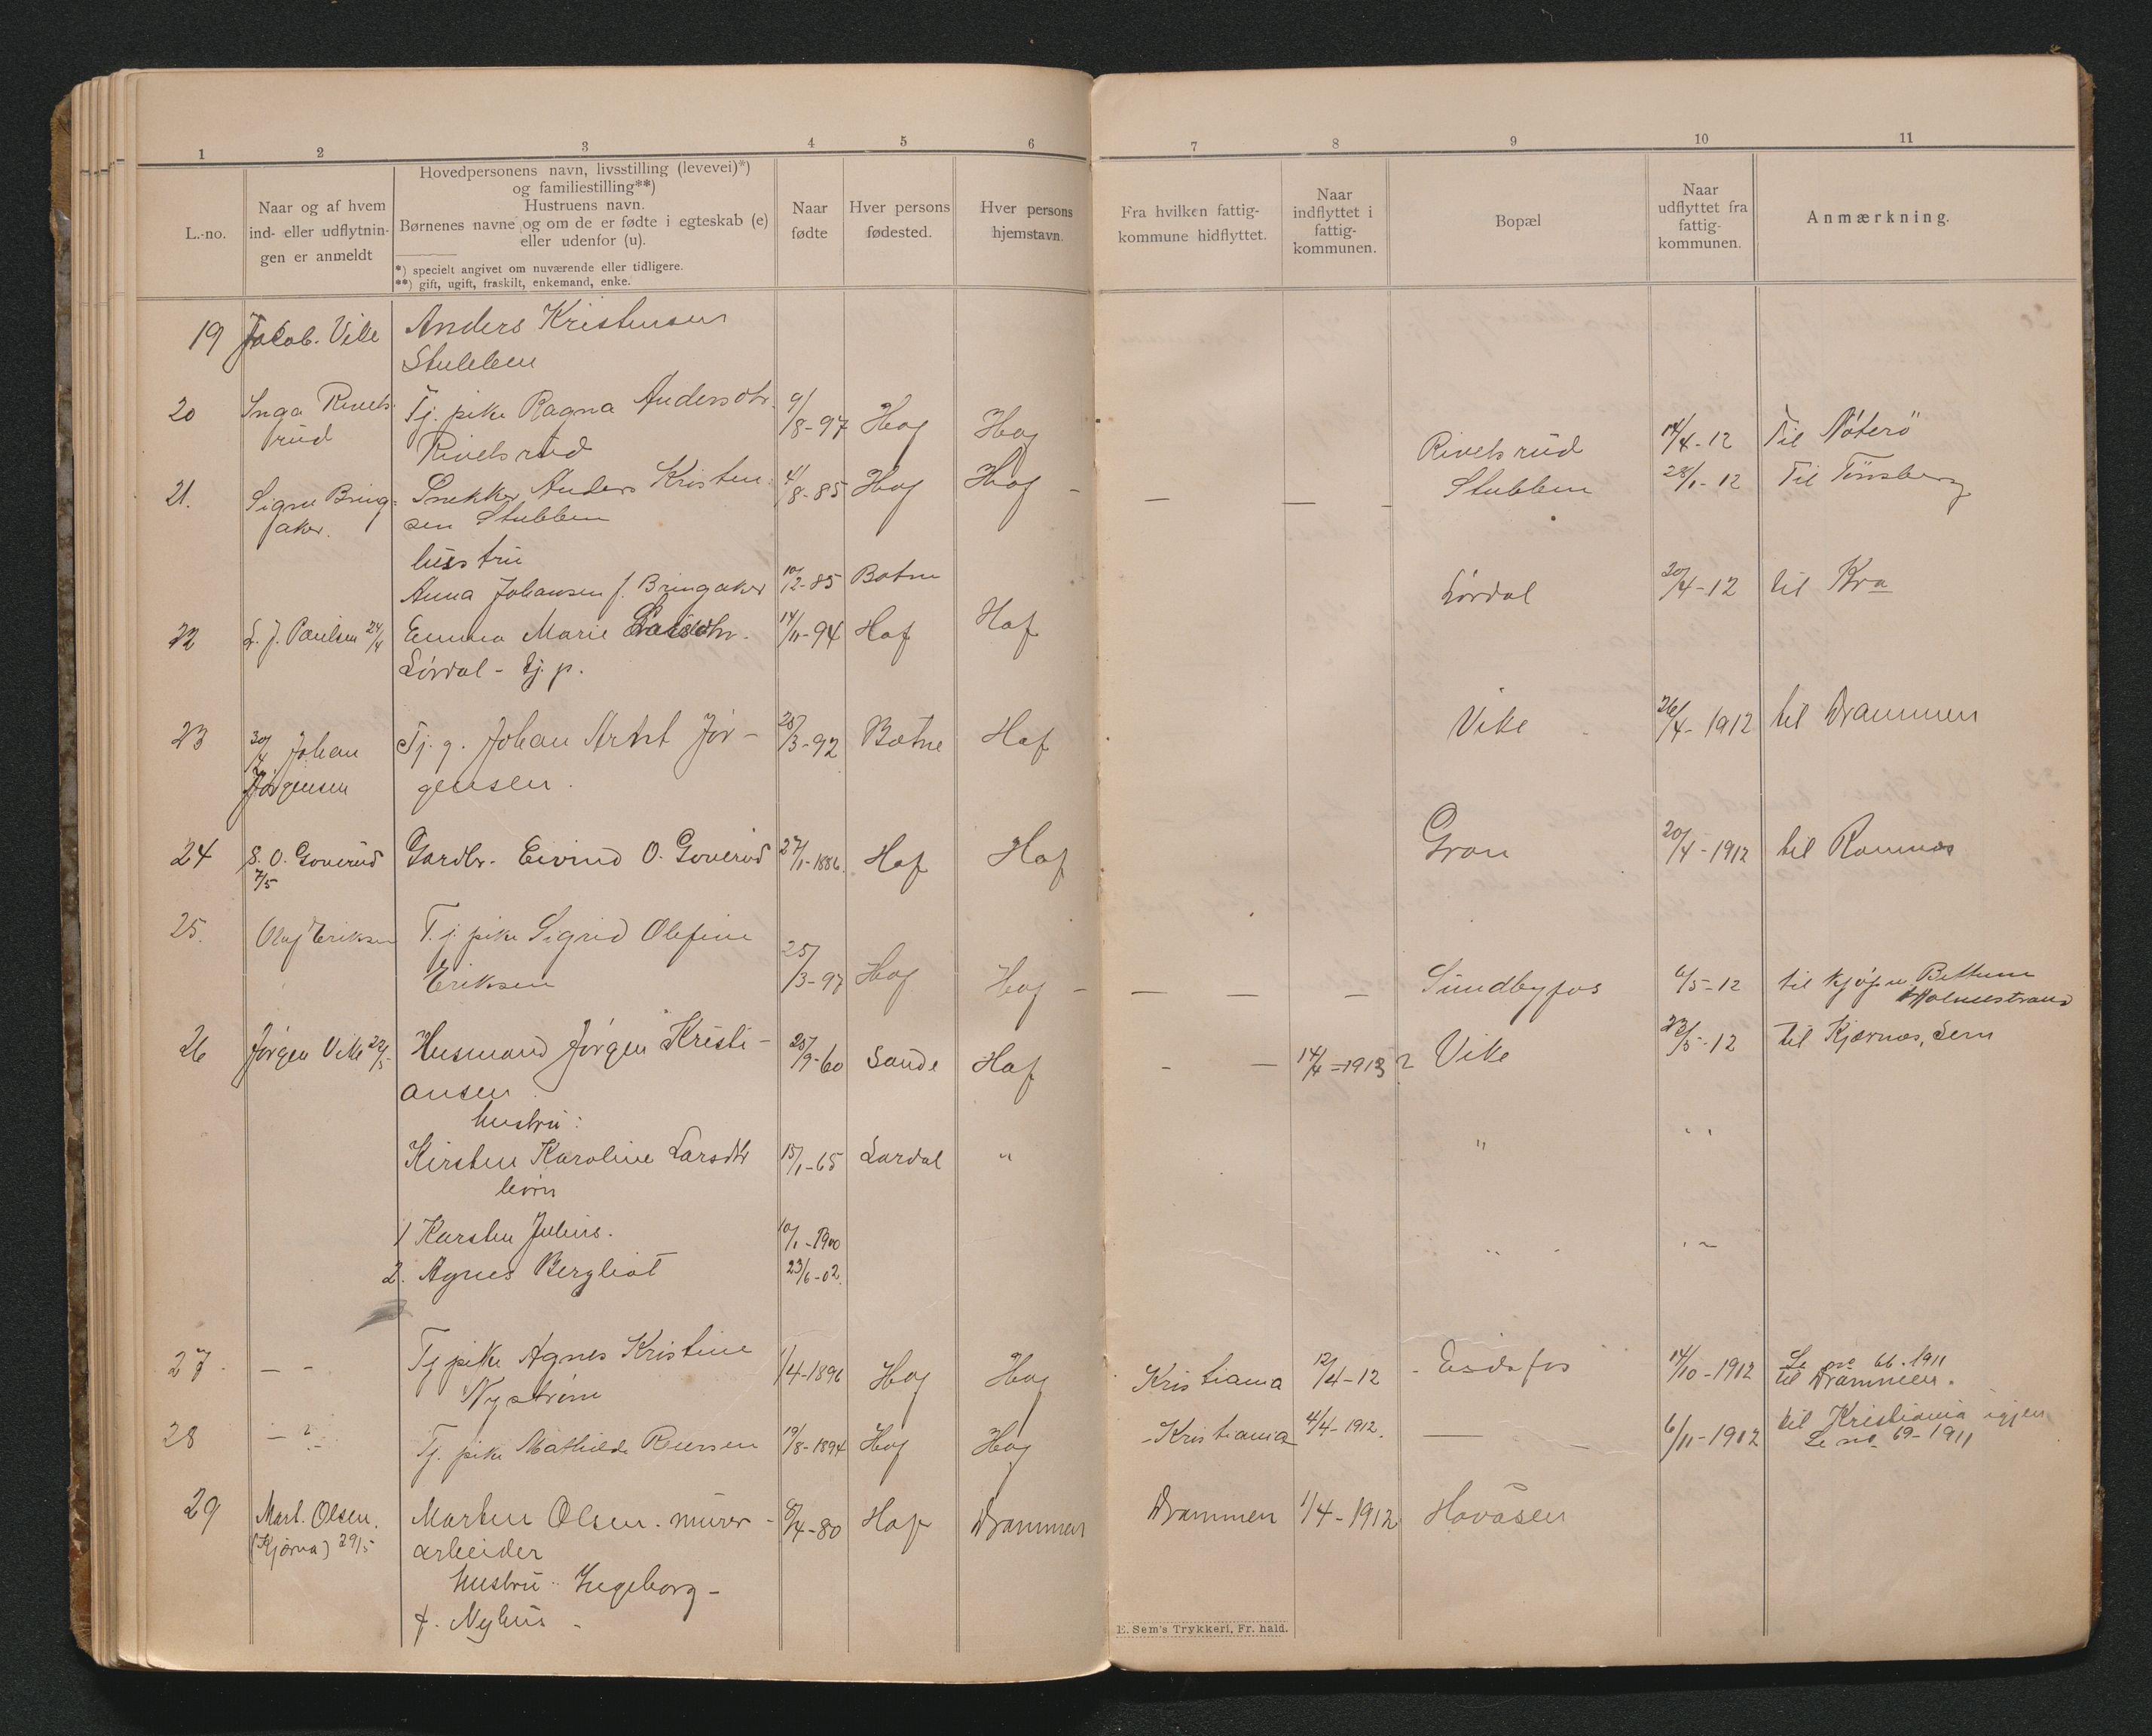 1 2 3 4 5 6 7 8 9 10 11
L.-no.
Naar og af hvem
ind- eller udflytnin-
gen er anmeldt
Hovedpersonens navn, livsstilling (levevei)*)
og familiestilling**)
Hustruens navn.
Børnenes navne og om de er fødte i egteskab (e)
eller udenfor (u).
*) specielt angivet om nuværende eller tidligere.
**) gift, ugift, fraskilt, enkemand, enke.
Naar
fødte
Hver persons
fødested.
Hver persons
hjemstavn.
Fra hvilken fattig-
kommune hidflyttet.
Naar
indflyttet i
fattig-
kommunen.
Bopæl
Naar
udflyttet fra
fattig-
kommunen.
Anmærkning.
19 Jakob. Vike Anders Kristensen
Stubben
20 Inga Rivels- Tj. pike Ragna Andersdtr. 9/8-97 Hof Hof Rivelsrud 14/4-12 Til Nøterö
rud Rivelsrud
21. Signe Bring- Snekker Anders Kristen- 4/8-85 Hof Hof - — — - Stubben 28/1-12 Til Tönsberg
aker. sen Stubben
hustru
Anna Johansen f. Bringaker 10/2-85 Botne
22 L. J. Paulsen 24/4 Emma Marie Larsdtr. 14/11-94 Hof Hof Lørdal 20/4-12 til Kra
Lørdal - tj. p.
23 30/4 Johan Tj. g. Johan Arnt Jør- 25/3-92 Botne Hof Vike 26/4-1912 til Drammen
Jørgensen gensen.
24 S. O. Goverud Gardbr. Eivind O. Goverud 27/1-1886. Hof Hof Gran 20/4-1912 til Ramnæs
7/5
25. Olaf Eriksen T.j. pike Sigrid Olefine
Eriksen 25/3-97 Hof Hof - — — — Sundbyfos 6/5-12 til kjøpm. Bettum
Holmestrand
26 Jørgen Vike 22/5 Husmand Jørgen Kristi- 25/9-60 Sande Hof - — 14/4-1913? Vike 23/5-12 til Kjærnæs, Sem
ansen
hustru:
Kirsten Karoline Larsdtr 15/1-65 Lardal " " "
børn
1 Karsten Julius. 10/1-1900 " "
2. Agnes Bergliot 23/6-02.
27 — - Tj pike Agnes Kristine 1/4-1896 Hof Hof Kristiania 12/4-12 - Eidsfos 14/10-1912 Se no 66-1911
Nystrøm til Drammen.
28 — " — Tj. pike Mathilde 19/8-1894 Hof Hof - Kristiania 4/4-1912. — - 6/11-1912 til Kristiania igjen
Se no 69-1911
29 Mart. Olsen. Martin Olsen. murer- 8/4-80 Hof Drammen Drammen 1/4-1912 Havåsen
(Kjørna) 29/5 arbeider
hustru: Ingeborg -
f. Nyhus -
E. Sem's Trykkeri, Fr. hald.